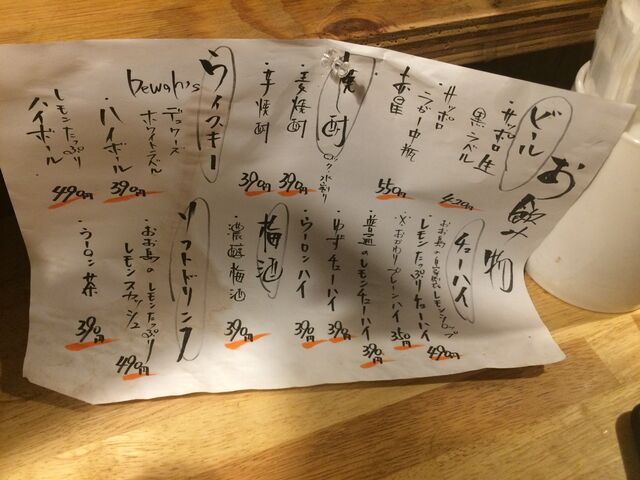 お飲み物
ビール
・サッポロ生
黒ラベル
420円
・サッポロ
ラガー中瓶
赤星
550円
焼酎
ロック 水割り
・麦焼酎
390円
・芋焼酎
390円
ウィスキー
Dewar's
デュワーズ
ホワイトラベル
・ハイボール
390円
レモンたっぷり
ハイボール
490円
チューハイ
・おお島の自家製レモンシロップ
レモンたっぷりチューハイ
490円
※おかわりプレーンハイ
350円
・普通のレモンチューハイ
390円
・ゆずチューハイ
390円
・ウーロンハイ
390円
梅酒
・濃醇梅酒
390円
ソフトドリンク
・おお島のレモンたっぷり
レモンスカッシュ
490円
・ウーロン茶
390円